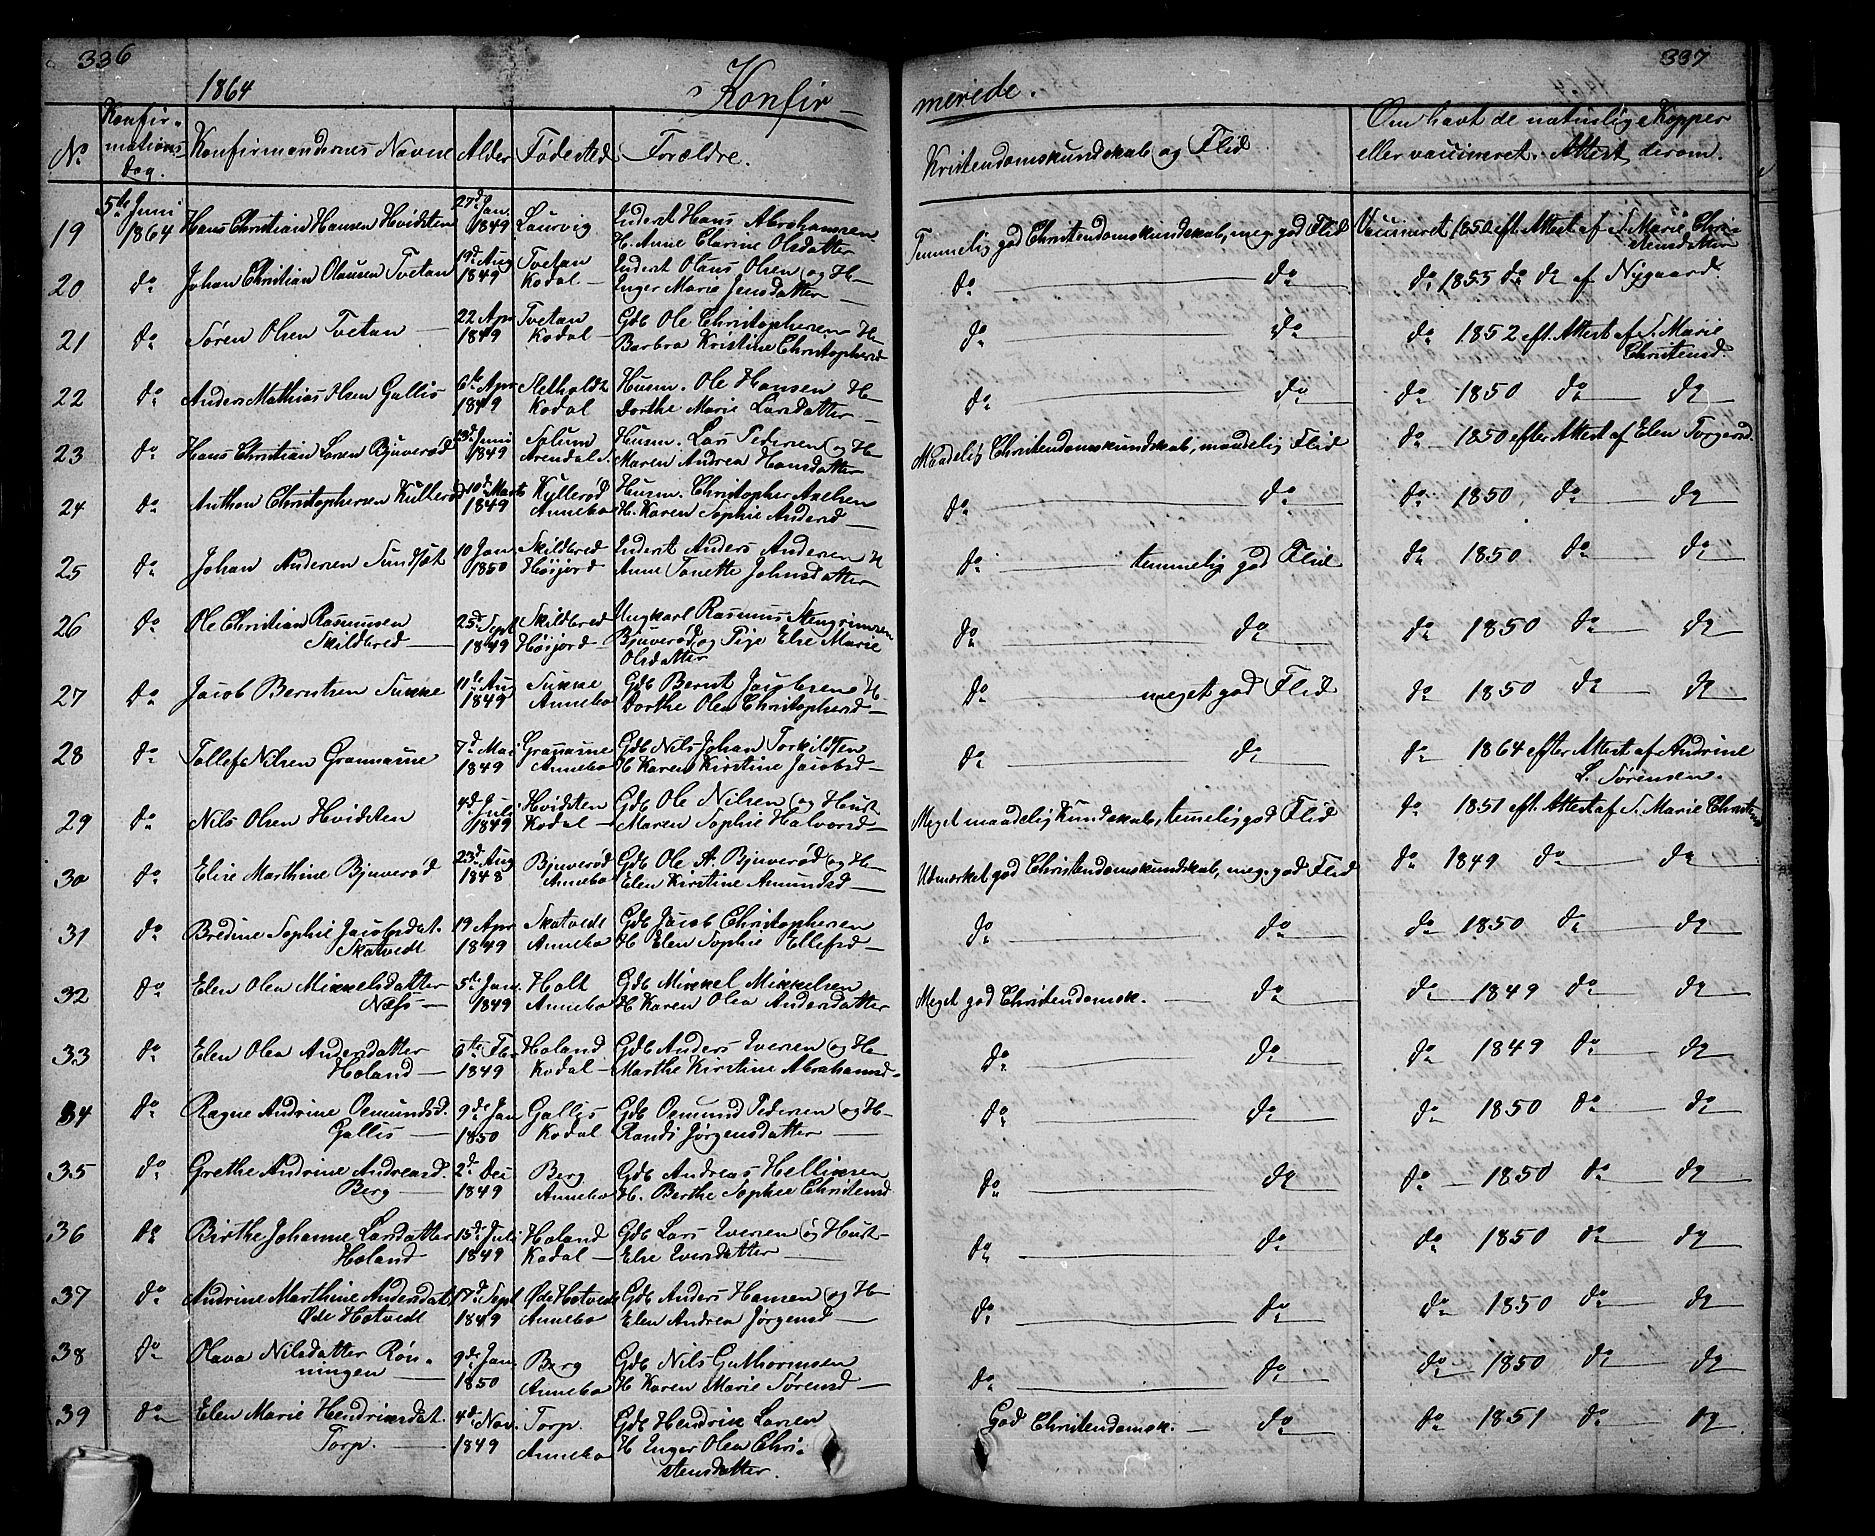 336
337
1864
Konfir-
merede.
No
Konfir-
mations
Dag.
Konfirmandernes Navne
Alder
Fødested
Forældre.
Kristendomskundskab og Flid
Om havt de naturlige Kopper
eller vaccineret. Attest derom.
19 5te Juni 1864 Hans Christian Hansen Hvidsten 27d Jan. 1849 Laurvig Inderst Hans Abrahamsen
H. Anne Clarine Olsdatter Temmelig god Christendomskundskab, meg. god Flid Vaccineret 1850 eft. Attest af S. Marie Chri-
stensdatter
20 do Johan Christian Olausen Tvetan 19d Aug 1849 Tvetan Kodal Inderst Olaus Olsen og H
Inger Marie Jensdatter do do do 1855 do do af Nygaard
21 do Søren Olsen Tvetan 22 Apr 1849 Tvetan Kodal Gdb Ole Christophersen H
Barbra Kristine Christophersd do do do 1852 eft. Attest af S. Marie
Christensd.
22 do Anders Mathias Olsen Gallis 6te Apr 1849 Sletholdt Kodal Husm. Ole Hansen H
Dorthe Marie Larsdatter do do do 1850 do do
23 do Hans Christian Larsen Bjuverød 13d Juni 1849 Solum Arendal S. Husm. Lars Pedersen og H
Maren Andrea Hansdatter Maadelig Christendomskundskab, maadelig Flid do 1850 efter Attest af Elen Torgersd.
24 do Anthon Christophersen Kullerød 10d Marts 1849 Kyllerød Annebo Husm. Christopher Axelsen
H. Karen Sophie Andersd do do do 1850 do do
25 do Johan Andersen Sundset 10 Jan 1850 Skildbred Høijord Inderst Anders Andersen H
Anne Tonette Johnsdatter do temmelig god Flid do 1850 do do
26 do Ole Christian Rasmussen
Skildbred 25d Sept 1849 Skildbred Høijord Ungkarl Rasmus Stengrimsen
Bjuverød og Pige Else Marie
Olsdatter do do do 1850 do do
27 do Jacob Berntsen Sukke 11te Aug 1849 Sukke Annebo Gdb Bernt Jacobsen H
Dorthe Olea Christophersd do meget god Flid do 1850 do do
28 do Tollef Nilsen Grannæsne 7d Mai 1849 Grannæsne Annebo Gdb Nils Johan Torkildsen
H Karen Kirstine Jacobsd do do do 1864 efter Attest af Andrine
L. Sørensen.
29 do Nils Olsen Hvidsten 4d Juli 1849 Hvidsten Kodal Gdb Ole Nilsen og Hust
Maren Sophie Halvorsd Meget maadelig Kundskab, temelig god Flid do 1851 eft. Attest af S. Marie Christensd
30 do Elise Marthine Bjuverød 23d Aug 1848 Bjuverød Annebo Gdb Ole A. Bjuverød og H
Elen Kirstine Amundsd Udmærket god Christendomskundskab, meg. god Flid do 1849 do do
31 do Bredine Sophie Jacobsdat.
Skatvedt 19 Apr 1849 Skatvedt Annebo Gdb Jacob Christophersen
H Elen Sophie Ellefsd do do do 1850 do do
32 do Elen Olea Mikkelsdatter
Næss 5te Jan. 1849 Holt Annebo Gdb Mikkel Mikkelsen
H Karen Olea Andersdatter Meget god Christendomsk. do do 1849 do do
33 do Elen Olea Andersdatter
Holand 6te Feb 1849 Holand Kodal Gdb Anders Iversen og H
Marthe Kirstine Abrahamsd do do do 1849 do do
34 do Ragne Andrine Osmundsd.
Gallis 9de Jan 1850 Gallis Kodal Gdb Osmund Pedersen og H
Randi Jørgensdatter do do do 1850 do do
35 do Grethe Andrine Andreasd.
Berg 2d Dec 1849 Berg Annebo Gdb Andreas Helliksen
H. Berthe Sophie Christensd do do do 1850 do do
36 do Birthe Johanne Larsdatter
Holand 15d Juli 1849 Holand Kodal Gdb Lars Iversen og Hust
Else Iversdatter do do do 1850 do do
37 do Andrine Marthine Andersdat
Øde Hotvedt 17d Sept 1849 Øde Hotvedt Annebo Gdb Anders Hansen og H
Elen Andrea Jørgensd do do do 1850 do do
38 do Olava Nilsdatter Røn-
ningen 9de Jan. 1850 Berg Annebo Gdb Nils Guthormsen
H Karen Marie Sørensd do do do 1850 do do
39 do Elen Marie Hendriksdat.
Torp. 4d Nov. 1849 Torp. Annebo Gdb Hendrik Larsen
H Inger Olea Chri-
stensdatter. God Christendomsk. do do 1851 do do